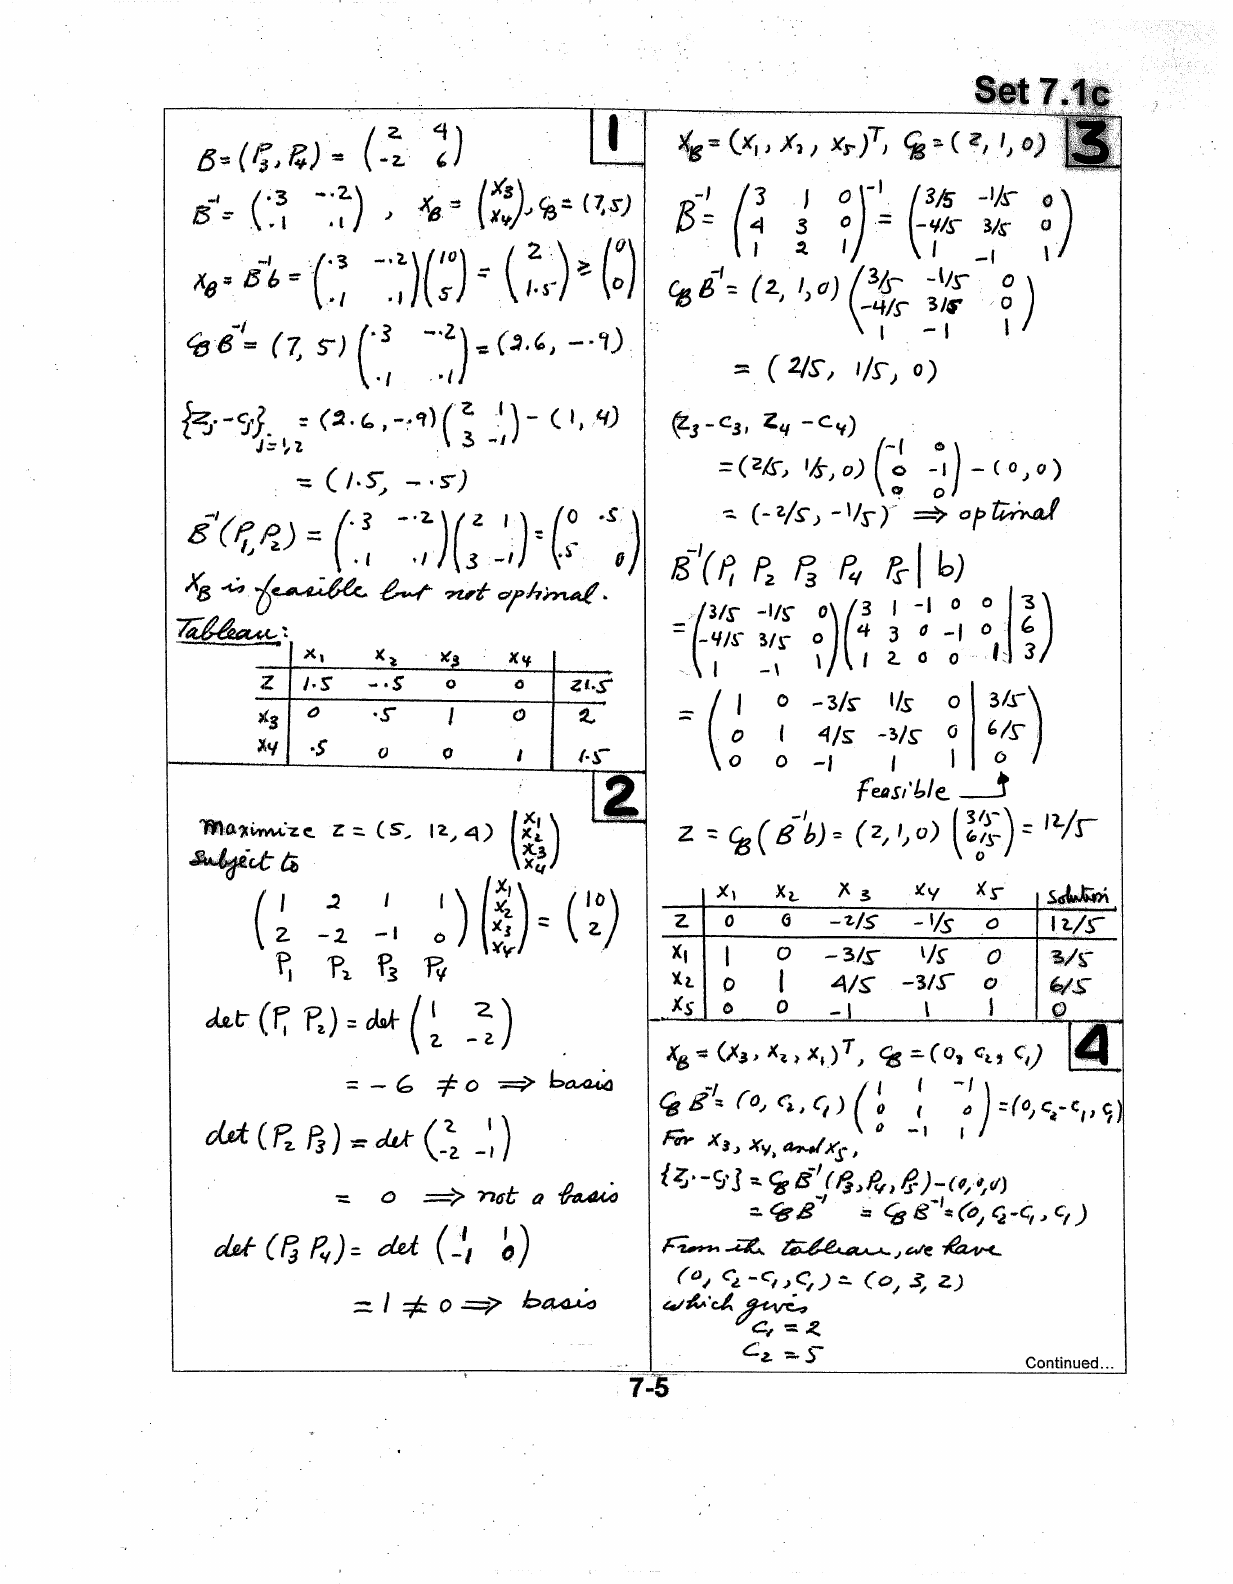 Set 7.1c
1
B = (P3, P4) = ( 2 4
-2 6 )
B^-1 = ( .3 -.2
.1 .1 ) , X_B = ( X3
X4 ), C_B = (7,5)
X_B = B^-1 b = ( .3 -.2
.1 .1 ) ( 10
5 ) = ( 2
1.5 ) ≥ ( 0
0 )
C_B B^-1 = (7, 5) ( .3 -.2
.1 .1 ) = (2.6, -.9)
{Zj - Cj} j=1,2 = (2.6, -.9) ( 2 1
3 -1 ) - (1, 4)
= (1.5, -.5)
B^-1 (P1, P2) = ( .3 -.2
.1 .1 ) ( 2 1
3 -1 ) = ( 0 .5
.5 0 )
X_B is feasible but not optimal.
Tableau:
x1 x2 x3 x4
Z 1.5 -.5 0 0 21.5
x3 0 .5 1 0 2
x4 .5 0 0 1 1.5
2
Maximize Z = (5, 12, 4) ( x1
x2
x3
x4 )
Subject to
( 1 2 1 1
2 -2 -1 0 ) ( x1
x2
x3
x4 ) = ( 10
2 )
P1 P2 P3 P4
det (P1 P2) = det ( 1 2
2 -2 )
= -6 ≠ 0 ⟹ basis
det (P2 P3) = det ( 2 1
-2 -1 )
= 0 ⟹ not a basis
det (P3 P4) = det ( 1 1
-1 0 )
= 1 ≠ 0 ⟹ basis
3
X_B = (X1, X2, X5)^T, C_B = (2, 1, 0)
B^-1 = ( 3 1 0
4 3 0
1 2 1 )^-1 = ( 3/5 -1/5 0
-4/5 3/5 0
1 -1 1 )
C_B B^-1 = (2, 1, 0) ( 3/5 -1/5 0
-4/5 3/5 0
1 -1 1 )
= (2/5, 1/5, 0)
(Z3 - C3, Z4 - C4)
= (2/5, 1/5, 0) ( -1 0
0 -1
0 0 ) - (0, 0)
= (-2/5, -1/5) ⟹ optimal
B^-1 (P1 P2 P3 P4 P5 | b)
= ( 3/5 -1/5 0
-4/5 3/5 0
1 -1 1 ) ( 3 1 -1 0 0 | 3
4 3 0 -1 0 | 6
1 2 0 0 1 | 3 )
= ( 1 0 -3/5 1/5 0 | 3/5
0 1 4/5 -3/5 0 | 6/5
0 0 -1 1 1 | 0 )
feasible
Z = C_B (B^-1 b) = (2, 1, 0) ( 3/5
6/5
0 ) = 12/5
x1 x2 x3 x4 x5 Solution
Z 0 0 -2/5 -1/5 0 12/5
x1 1 0 -3/5 1/5 0 3/5
x2 0 1 4/5 -3/5 0 6/5
x5 0 0 -1 1 1 0
4
X_B = (X3, X2, X1)^T, C_B = (0, C2, C1)
C_B B^-1 = (0, C2, C1) ( 1 1 -1
0 1 0
0 -1 1 ) = (0, C2-C1, C1)
For X3, X4, and X5,
{Zj - Cj} = C_B B^-1 (P3, P4, P5) - (0,0,0)
= C_B B^-1 = C_B B^-1 = (0, C2-C1, C1)
From the tableau, we have
(0, C2-C1, C1) = (0, 3, 2)
which gives
C1 = 2
C2 = 5
Continued...
7-5